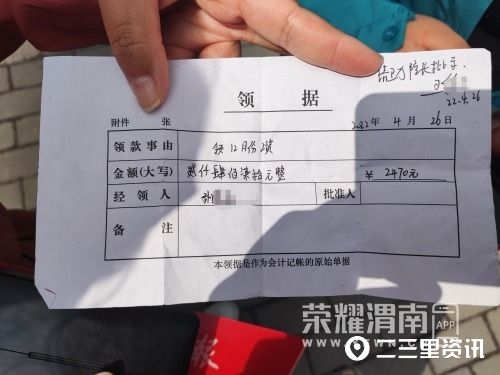 院长批示.
22.4.26
领 据
附件 张
2022年 4月 26日
领款事由 领12月份工资
金额(大写) 贰仟肆佰柒拾元整 ￥ 2470元
经领人
批准人
备 注
本领据是作为会计记帐的原始单据
荣耀渭南 APP
二三里资讯
报